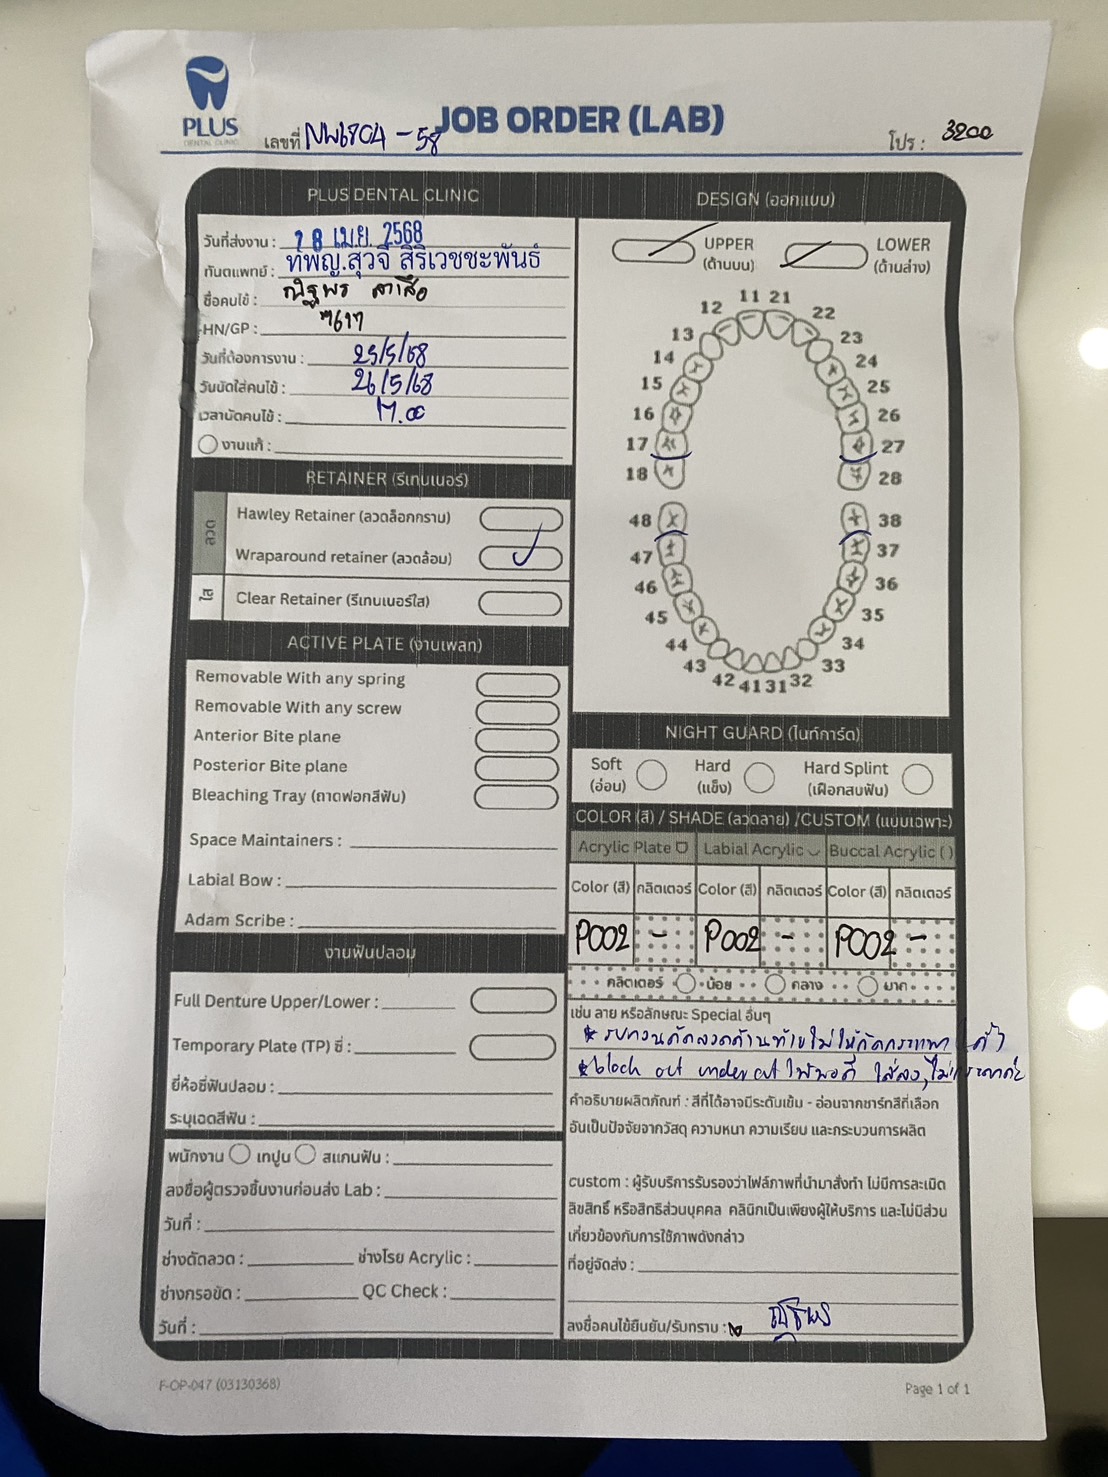 PLUS
DENTAL CLINIC
JOB ORDER (LAB)
เลขที่ NW6804-58
โปร : 3200
PLUS DENTAL CLINIC
วันที่ส่งงาน : 28 เม.ย. 2568
ทันตแพทย์ : ทพญ.สุวจี สิริเวชชะพันธ์
ชื่อคนไข้ : ณิฐพร
HN/GP : 7617
วันที่ต้องการงาน : 25/5/68
วันนัดใส่คนไข้ : 26/5/68
เวลานัดคนไข้ : 17.00
งานแก้ :
RETAINER (รีเทนเนอร์)
Hawley Retainer (ลวดล็อกกราม)
Wraparound retainer (ลวดล้อม)
Clear Retainer (รีเทนเนอร์ใส)
ACTIVE PLATE (งานเพลท)
Removable With any spring
Removable With any screw
Anterior Bite plane
Posterior Bite plane
Bleaching Tray (ถาดฟอกสีฟัน)
Space Maintainers :
Labial Bow :
Adam Scribe :
งานฟันปลอม
Full Denture Upper/Lower :
Temporary Plate (TP) ซี่ :
ยี่ห้อซี่ฟันปลอม :
ระบุเฉดสีฟัน :
พนักงาน เทปูน สแกนฟัน :
ลงชื่อผู้ตรวจชิ้นงานก่อนส่ง Lab :
วันที่ :
ช่างดัดลวด : ช่างโรย Acrylic :
ช่างกรอขัด : QC Check :
วันที่ :
DESIGN (ออกแบบ)
UPPER LOWER
(ด้านบน) (ด้านล่าง)
11 21
12 22
13 23
14 24
15 25
16 26
17 27
18 28
48 38
47 37
46 36
45 35
44 34
43 33
42 41 31 32
NIGHT GUARD (ไนท์การ์ด)
Soft Hard Hard Splint
(อ่อน) (แข็ง) (เฝือกสบฟัน)
COLOR (สี) / SHADE (ลวดลาย) /CUSTOM (แบบเฉพาะ)
Acrylic Plate Labial Acrylic Buccal Acrylic ( )
Color (สี) กลิตเตอร์ Color (สี) กลิตเตอร์ Color (สี) กลิตเตอร์
P002 - P002 - P002 -
กลิตเตอร์ น้อย กลาง มาก
เช่น ลาย หรือลักษณะ Special อื่นๆ
* รบกวนดัดลวดด้านท้ายไม่ให้กัดกระแทก
* block out undercut ให้พอดี ใส่ลง,
คำอธิบายผลิตภัณฑ์ : สีที่ได้อาจมีระดับเข้ม - อ่อนจากชาร์ทสีที่เลือก
อันเป็นปัจจัยจากวัสดุ ความหนา ความเรียบ และกระบวนการผลิต
custom : ผู้รับบริการรับรองว่าไฟล์ภาพที่นำมาสั่งทำ ไม่มีการละเมิด
ลิขสิทธิ์ หรือสิทธิส่วนบุคคล คลินิกเป็นเพียงผู้ให้บริการ และไม่มีส่วน
เกี่ยวข้องกับการใช้ภาพดังกล่าว
ที่อยู่จัดส่ง :
ลงชื่อคนไข้ยืนยัน/รับทราบ : ณิฐพร
F-OP-047 (03130368)
Page 1 of 1